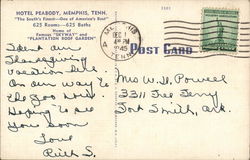 HOTEL PEABODY, MEMPHIS, TENN.
"The South's Finest—One of America's Best"
625 Rooms—625 Baths
Home of
Famous "SKYWAY" and
"PLANTATION ROOF GARDEN"
MEMPHIS
DEC 1
4 PM
1945
TENN.
POST CARD
Spent our
Thanksgiving
vacation here.
On our way to
the Zoo now.
Hoping to see
you soon
Love
Ruth S.
Mrs W. J. Powell
3311 Free Ferry
Fort Smith, Ark.